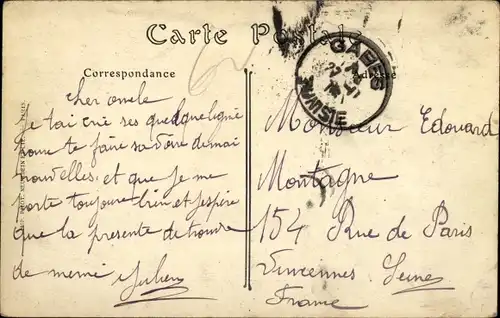 Carte Postale
Correspondance
GABES
TUNISIE
Cher oncle
Je tai crie ses quelque ligne
pour te faire savoire de mai
nouvelles et que je me
porte toujours bien et jespère
que la presente te trouve
de meme Julien
Monsieur Edouard
Montagne
154 Rue de Paris
Vincennes Seine
France